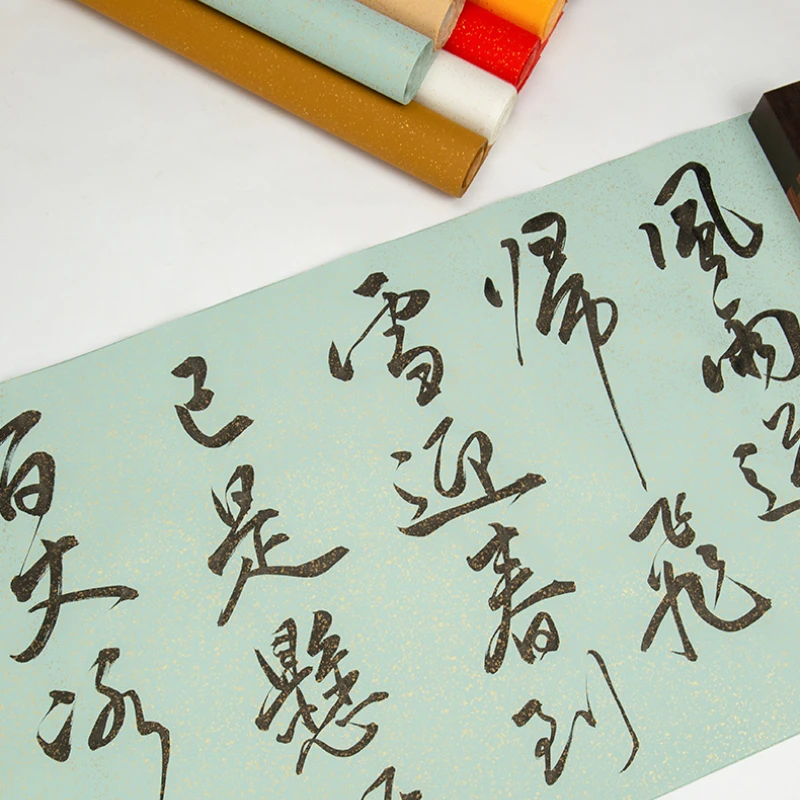 風雨送
歸飛
雪迎春到
已是懸
百丈冰